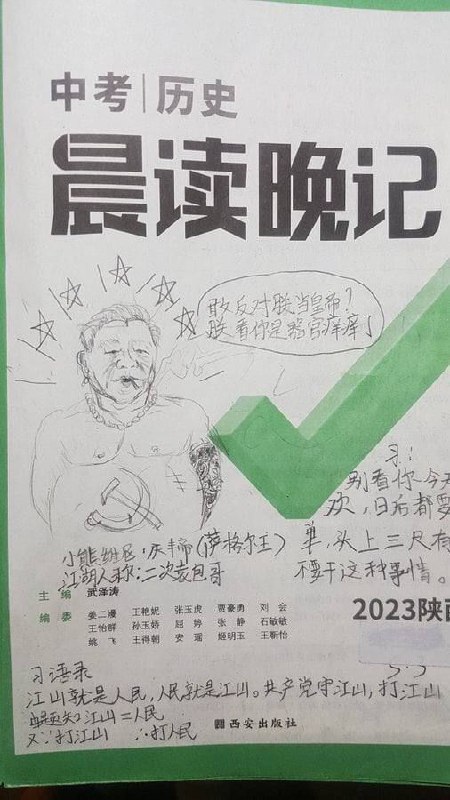 中考|历史
晨读晚记
敢反对朕当皇帝?
朕看你是器官痒痒了
习:
别看你今天
欢,日后都要
单,头上三尺有
不要干这种事情。
小熊维尼:庆丰帝(萨格尔王)
江湖人称:二次麦包哥
主 编 武泽涛
编 委 姜二漫 王艳妮 张玉虎 曹豪勇 刘会
王怡群 孙玉娇 屈婷 张静 石敏敏
姚飞 王得朝 安瑶 姬明玉 王靳怡
2023陕西
习语录
江山就是人民,人民就是江山。共产党守江山,打江山
江山=人民
又∵打江山 ∴打人民
西安出版社